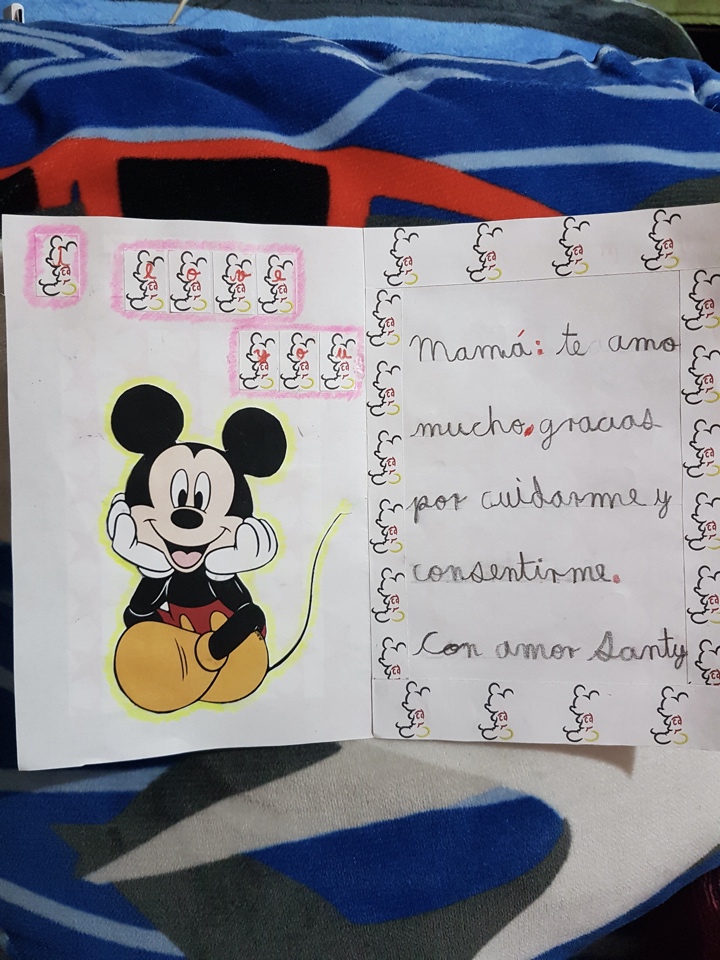 I love
you
Mamá: te amo
mucho. gracias
por cuidarme y
consentirme.
Con amor Santy